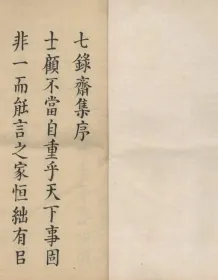 七錄齋集序
士顧不當自重乎天下事固
非一而能言之家恒絀有呂